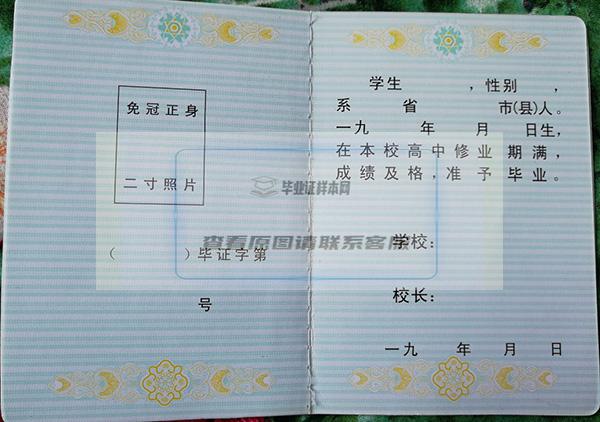 免冠正身
二寸照片
（ ）毕证字第
号
学生 ，性别 ，
系 省 市(县)人。
一九 年 月 日生，
在本校高中修业 期满，
成绩及格，准予 毕业。
学校：
校长：
一九 年 月 日
毕业证样本网
查看原图请联系客服